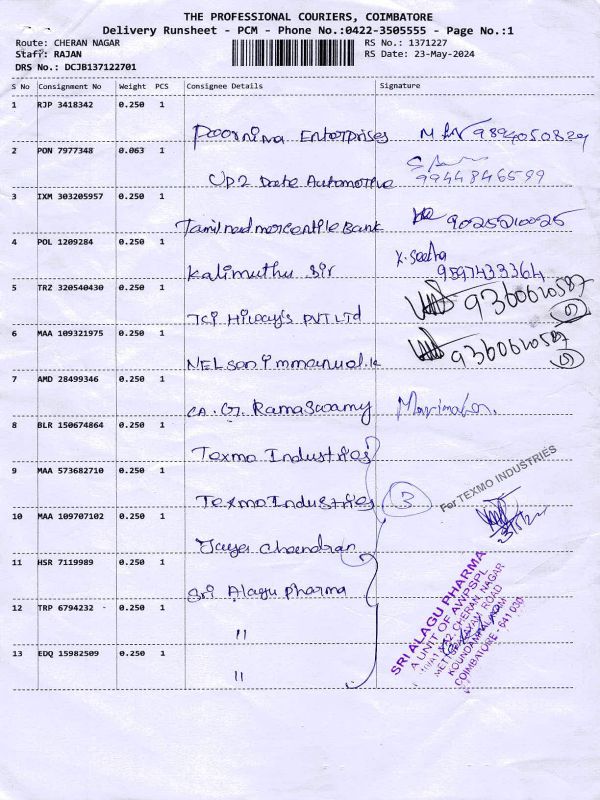 THE PROFESSIONAL COURIERS, COIMBATORE
Delivery Runsheet - PCM - Phone No.:0422-3505555 - Page No.:1
Route: CHERAN NAGAR RS No.: 1371227
Staff: RAJAN RS Date: 23-May-2024
DRS No.: DCJB137122701
S No Consignment No Weight PCS Consignee Details Signature
1 RJP 3418342 0.250 1
Poornima Enterprises 9894050829
2 PON 7977348 0.063 1
UP2 Date Automotive 9944846599
3 IXM 303205957 0.250 1
Tamilnadmercentile Bank 9025210025
4 POL 1209284 0.250 1
Kalimuthu Sir K. Seetha
9597433364
5 TRZ 320540430 0.250 1
TCI Hiways PVT Ltd 9360610587
6 MAA 109321975 0.250 1
NELSon immanual.k 9360610587
7 AMD 28499346 0.250 1
CA. G. Ramaswamy
8 BLR 150674864 0.250 1
Texmo Industries
9 MAA 573682710 0.250 1
Texmo Industries 3
For TEXMO INDUSTRIES
10 MAA 109707102 0.250 1
Jaya Chandran
11 HSR 7119989 0.250 1
Sri Alagu Pharma
12 TRP 6794232 0.250 1
"
13 EDQ 15982509 0.250 1
"
SRI ALAGU PHARMA
A UNIT OF AWPSPL
CHERAN NAGAR
ROAD
COIMBATORE - 641 030